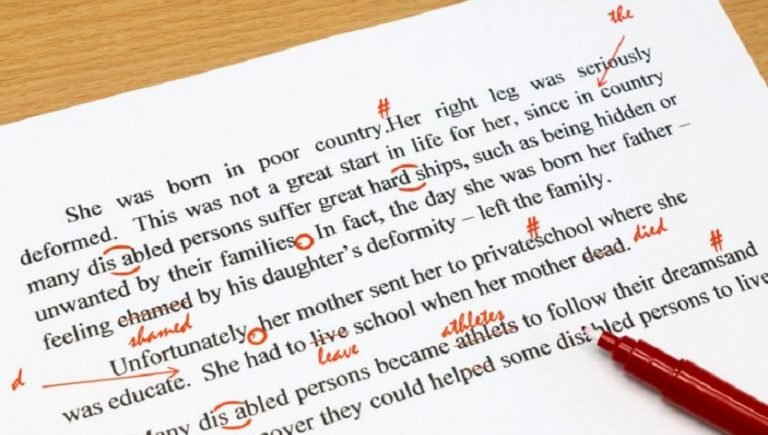 the
#
She was born in poor country.Her right leg was seriously
deformed. This was not a great start in life for her, since in country
many dis abled persons suffer great hard ships, such as being hidden or
unwanted by their families. In fact, the day she was born her father –
feeling chamed by his daughter's deformity – left the family.
shamed
# died #
Unfortunately her mother sent her to privateschool where she
d
was educate. She had to live school when her mother dead.
leave athletes
Many dis abled persons became athlets to follow their dreamsand
they could helped some persons to live